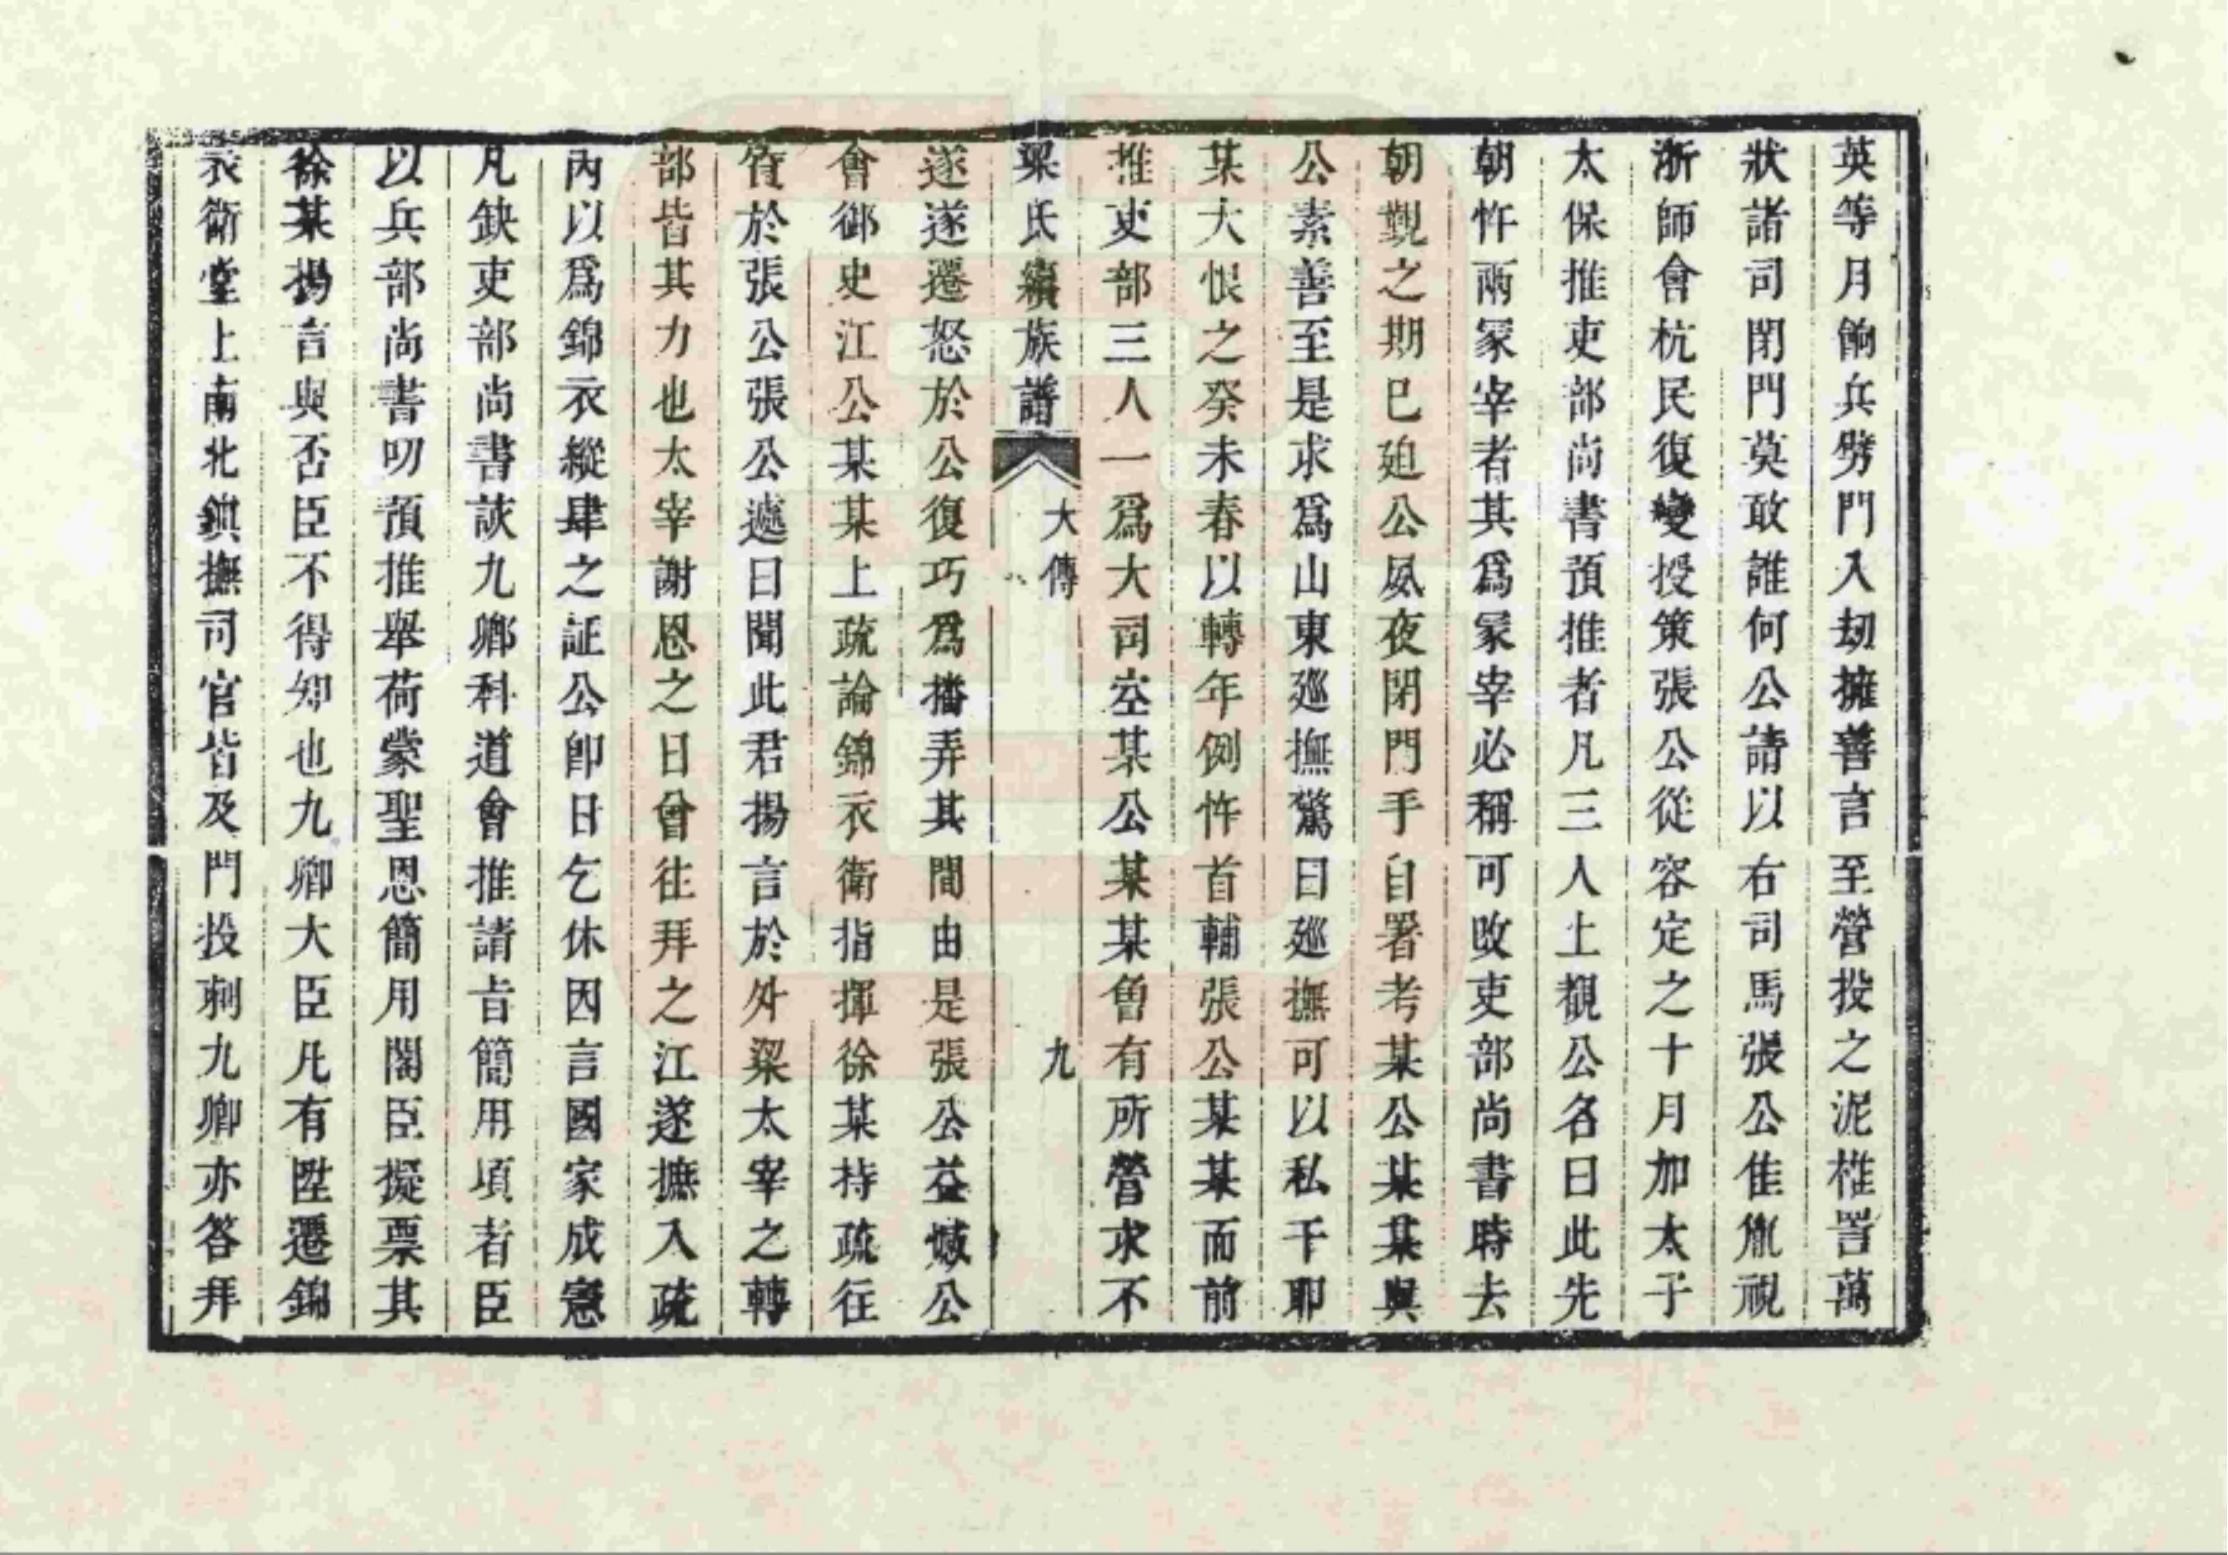 英等月餉兵劈門入劫擁善言至營投之泥椎詈萬
狀諸司閉門莫敢誰何公請以右司馬張公佳胤視
浙師會杭民復變授策張公從容定之十月加太子
太保推吏部尚書預推者凡三人上覩公名曰此先
朝忤兩冢宰者其爲冢宰必稱可改吏部尚書時去
朝覲之期巳廹公夙夜閉門手自署考某公某某與
公素善至是求爲山東廵撫驚曰廵撫可以私干耶
某大恨之癸未春以轉年例忤首輔張公某某而前
推吏部三人一爲大司空某公某某曾有所營求不
梁氏續族譜 大傳 九
遂遂遷怒於公復巧爲播弄其間由是張公益憾公
會御史江公某某上疏論錦衣衛指揮徐某持疏往
質於張公張公遽曰聞此君揚言於外梁太宰之轉
部皆其力也太宰謝恩之日曾往拜之江遂摭入疏
內以爲錦衣縱肆之証公卽日乞休因言國家成憲
凡缺吏部尚書該九卿科道會推請旨簡用項者臣
以兵部尚書叨預推舉荷蒙聖恩簡用閣臣擬票其
徐某揚言與否臣不得知也九卿大臣凡有陞遷錦
衣衛堂上南北鎮撫司官皆及門投刺九卿亦答拜